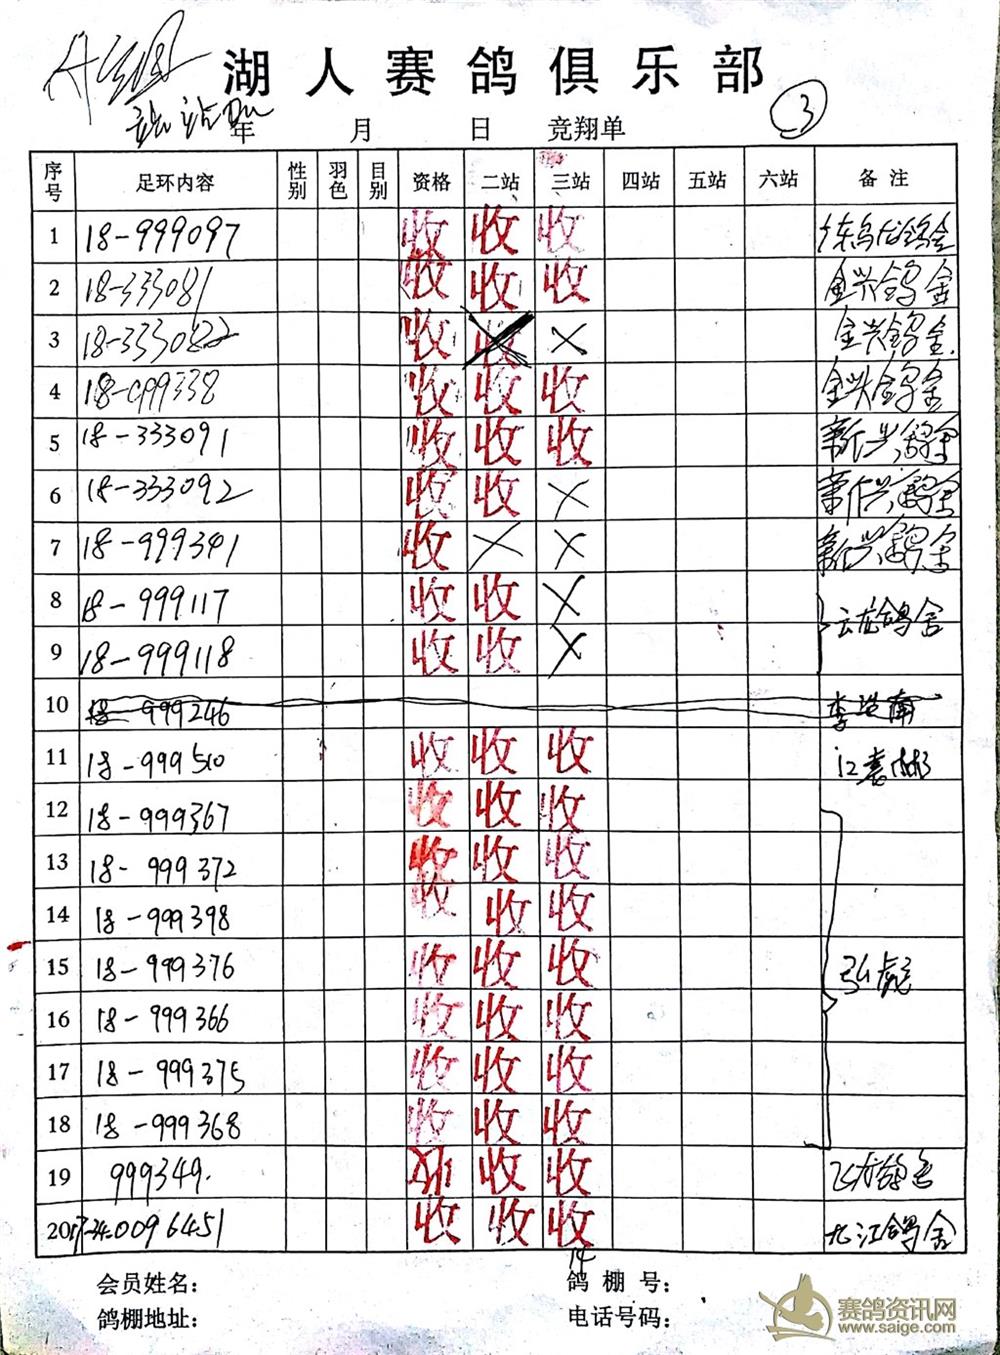 湖人赛鸽俱乐部
3
年 月 日 竞翔单
序号 足环内容 性别 羽色 目别 资格 二站 三站 四站 五站 六站 备注
1 18-999097 收 收 收
2 18-333081 收 收 收 金兴鸽舍
3 18-333082 收 收 × 金兴鸽舍
4 18-999338 收 收 收 金兴鸽舍
5 18-333091 收 收 收 新兴鸽舍
6 18-333092 收 收 × 新兴鸽舍
7 18-999341 收 × × 新兴鸽舍
8 18-999117 收 收 ×
云龙鸽舍
9 18-999118 收 收 ×
10 18-999246
11 18-999510 收 收 收 江袁彬
12 18-999367 收 收 收
13 18-999372 收 收 收
14 18-999398 收 收 收
15 18-999376 收 收 收 弘彪
16 18-999366 收 收 收
17 18-999375 收 收 收
18 18-999368 收 收 收
19 999349. 收 收 收 飞龙鸽舍
20 0096451 收 收 收 九江鸽舍
14
会员姓名： 鸽棚号：
鸽棚地址： 电话号码：
赛鸽资讯网
www.saige.com